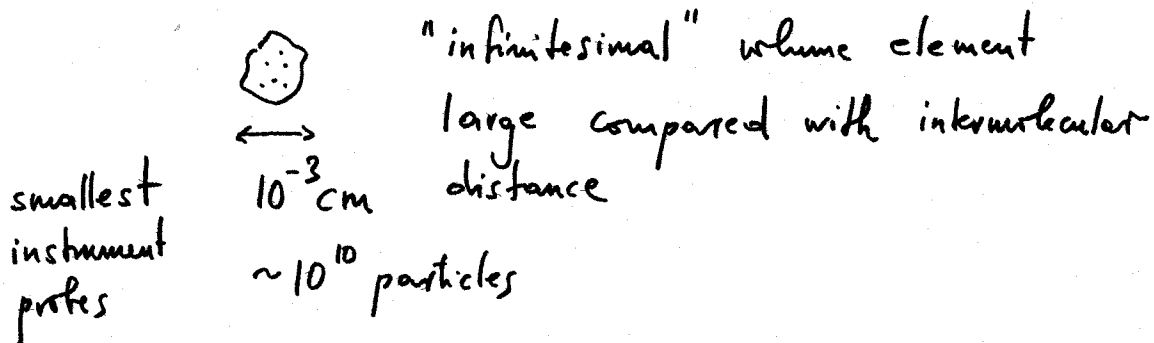 "infinitesimal" volume element
large compared with intermolecular
distance
smallest
instrument
probes
10⁻³ cm
~10¹⁰ particles